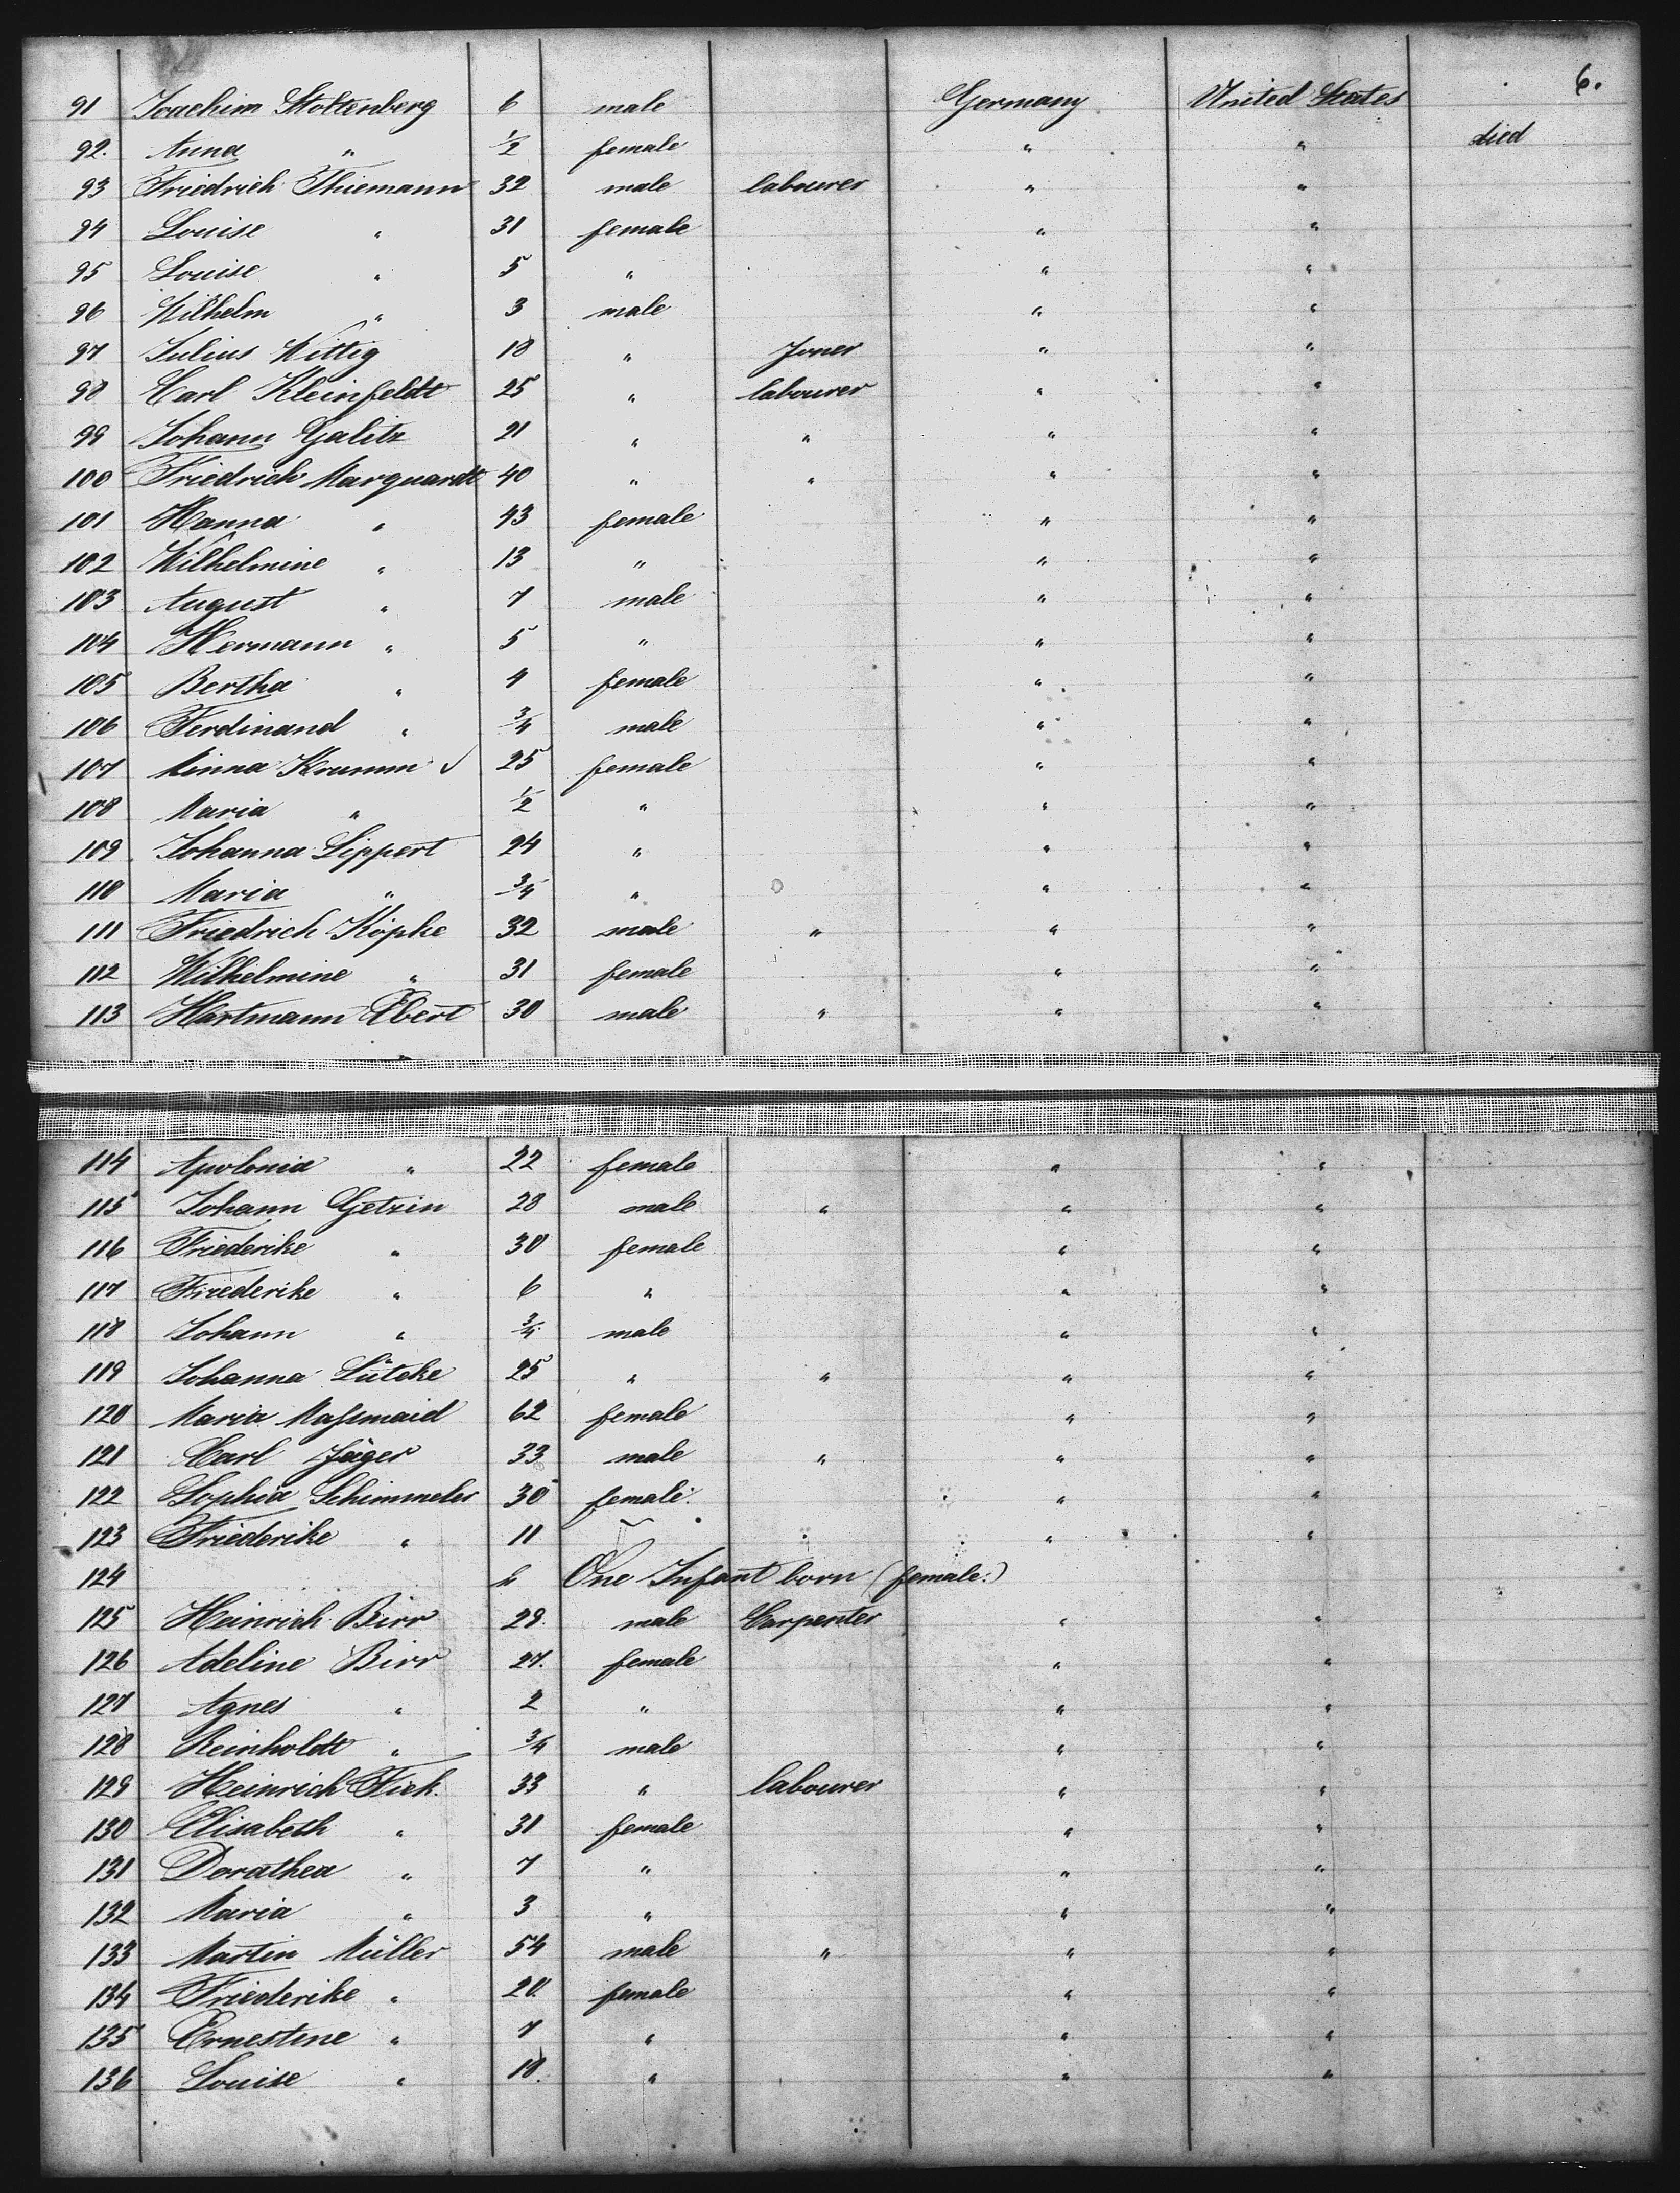 6.
91 Joachim Stoltenberg 6 male Germany United States
92. Anna " 1/2 female " " died
93 Friedrich Thiemann 32 male labourer " "
94 Louise " 31 female " "
95 Louise " 5 " " "
96 Wilhelm " 3 male " "
97 Julius Wittig 18 " Joner " "
98 Carl Kleinfeldt 25 " labourer " "
99 Johann Galitz 21 " " " "
100 Friedrich Marquardt 40 " " " "
101 Hanna " 43 female " "
102 Wilhelmine " 13 " " "
103 August " 7 male " "
104 Hermann " 5 " " "
105 Bertha " 4 female " "
106 Ferdinand " 3/4 male " "
107 Minna Krumm 25 female " "
108 Maria " 1/2 " " "
109 Johanna Lippert 24 " " "
110 Maria " 3/4 " " "
111 Friedrich Köpke 32 male " " "
112 Wilhelmine " 31 female " "
113 Hartmann Ebert 30 male " " "
114 Apolonia " 22 female " "
115 Johann Getzin 28 male " " "
116 Friederike " 30 female " "
117 Friederike " 6 " " "
118 Johann " 3/4 male " "
119 Johanna Lütcke 25 " " " "
120 Maria Maßmaid 62 female " "
121 Carl Jäger 33 male " " "
122 Sophia Schimmeler 30 female. " "
123 Friederike " 11 " "
124 One Infant born (female.)
125 Heinrich Birr 28. male Carpenter " "
126 Adeline Birr 27. female " "
127 Agnes " 2 " " "
128 Reinholdt " 3/4 male " "
129 Heinrich Fick. 33 " labourer " "
130 Elisabeth " 31 female " "
131 Dorathea " 7 " " "
132 Maria " 3 " " "
133 Martin Müller 54 male " " "
134 Friederike " 20 female " "
135 Ernestine " 7 " " "
136 Louise " 18. " " "